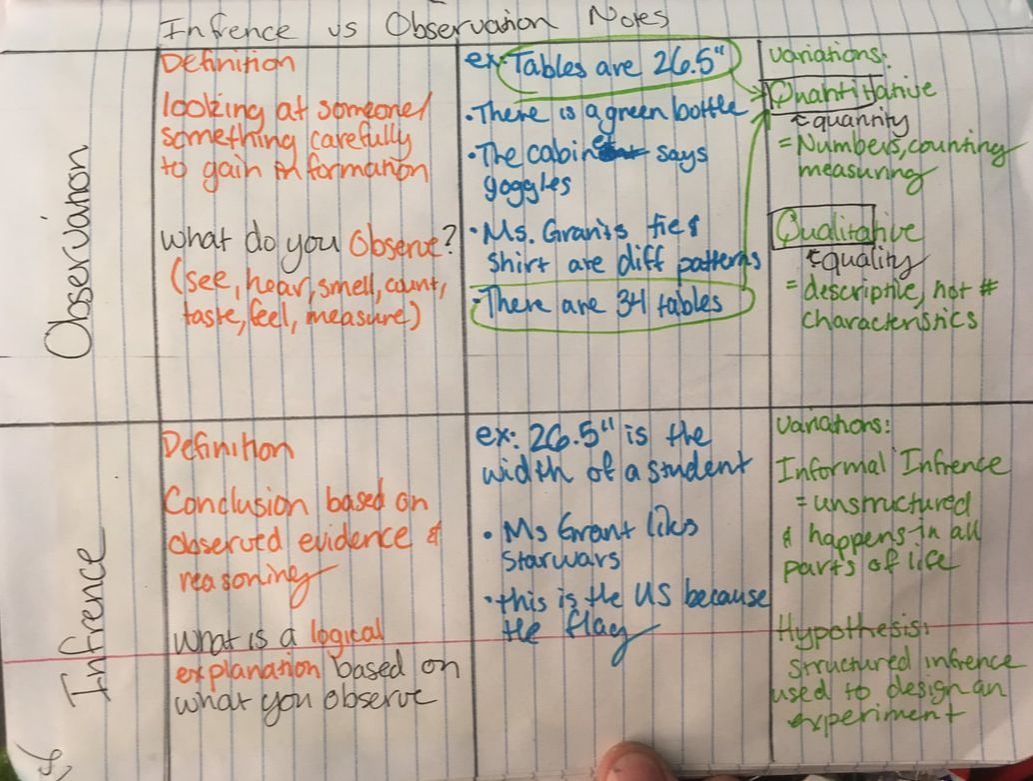 Infrence vs Observation Notes
Observation
Definition
looking at someone/
something carefully
to gain information
What do you Observe?
(see, hear, smell, count,
taste, feel, measure)
ex: Tables are 26.5"
• There is a green bottle
• The cabinet says
goggles
• Ms. Grants tie &
shirt are diff patterns
• There are 34 tables
Variations:
Quantitative
quantity
= Numbers, counting
measuring
Qualitative
quality
= descriptive, not #
characteristics
Infrence
Definition
Conclusion based on
observed evidence &
reasoning
What is a logical
explanation based on
what you observe
ex: 26.5" is the
width of a student
• Ms Grant liks
Starwars
• this is the US because
the flag
Variations:
Informal Infrence
= unstructured
& happens in all
parts of life
Hypothesis:
structured infrence
used to design an
experiment